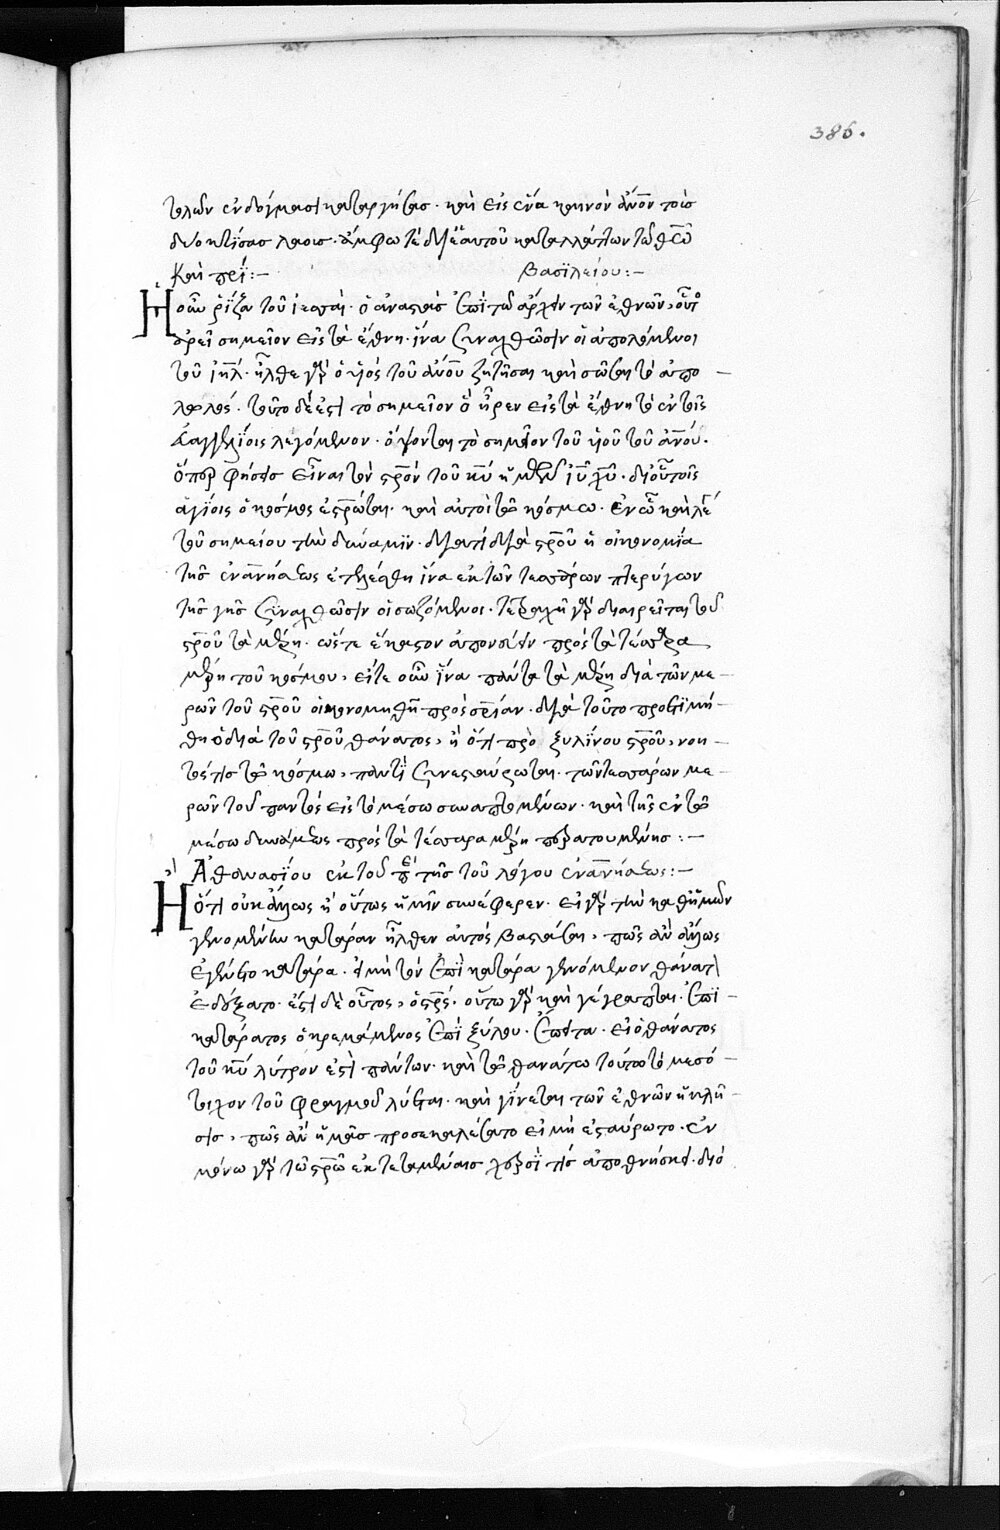 386.
τολῶν ἐν δόγμασι καταργήσας· καὶ εἰς ἕνα καινὸν ἄνον τοὺς
δύο κτίσας λαοὺς· ἄμφω τὲ δι' ἑαυτοῦ καταλλάττων τῶ θεῶ
καὶ πρι:— Βασιλείου:—
Ἡ οὖν ῥίζα τοῦ ἰεσσαὶ· ὁ ἀναστὰς ἐπὶ τῶ ἄρχειν τῶν ἐθνῶν, οὗτος
ἀρεῖ σημεῖον εἰς τὰ ἔθνη· ἵνα συναχθῶσιν οἱ ἀπολόμενοι
τοῦ ἰηλ· ἦλθε γὰρ ὁ υἱὸς τοῦ ἀνου ζητῆσαι καὶ σῶσαι τὸ ἀπο
λωλός· τοῦτο δέ ἐστι τὸ σημεῖον ὃ ἦρεν εἰς τὰ ἔθνη τὸ ἐν τοῖς
εὐαγγελίοις λεγόμενον· ὄψονται τὸ σημεῖον τοῦ υἱοῦ τοῦ ἀνου·
ὅπερ φήσεις εἶναι τὸν στρον τοῦ κυ ἡμῶν ιυ χυ· δι' οὗ τοῖς
ἁγίοις ὁ κόσμος ἐστρωται· καὶ αὐτοὶ τῶ κόσμω· ἐν ὧ καὶ λέγει
τοῦ σημείου τὴν δύναμιν· διατί διὰ στρου ἡ οἰκονομία
τῆς ἐνανήσεως ἐτελέσθη ἵνα ἐκ τῶν τεσσάρων πτερύγων
τῆς γῆς συναχθῶσιν οἱ σωζόμενοι· τετραχῆ γὰρ διαιρεῖται τοῦ
στρου τὰ μέρη· ὥστε ἕκαστον ἀπονεύειν πρὸς τὰ τέσσαρα
μέρη τοῦ κόσμου, εἴτε οὖν ἵνα πάντα τὰ μέρη διὰ τῶν με
ρῶν τοῦ στρου οἰκονομηθῆ πρὸς σριαν· διὰ τοῦτο προετιμή
θη ὁ διὰ τοῦ στρου θάνατος, ἢ ὅτι πρὸ ξυλίνου στρου, νοη
τός τις τῶ κόσμω, παντὶ συνεσταύρωται· τῶν τεσσάρων με
ρῶν τοῦ παντὸς εἰς τὸ μέσω συναπτομένων· καὶ τῆς ἐν τῶ
μέσω δυνάμεως πρὸς τὰ τέσσαρα μέρη περατουμένης:—
Ἀθανασίου ἐκ τοῦ περὶ τῆς τοῦ λόγου ἐνανήσεως:—
Ἢ ὅτι οὐκ ἄλλως ἢ οὕτως ἡμῖν συνέφερεν· εἰ γὰρ τὴν καθ' ἡμῶν
γενομένην κατάραν ἦλθεν αὐτὸς βαστάσαι, πῶς ἂν ἄλλως
ἐγένετο κατάρα· εἰ μὴ τὸν ἐπὶ κατάρα γενόμενον θάνατον
ἐδέξατο· ἔστι δὲ οὗτος, ὁ στρς· οὕτω γὰρ καὶ γέγραπται· ἐπι
κατάρατος ὁ κρεμάμενος ἐπὶ ξύλου· ἔπειτα· εἰ ὁ θάνατος
τοῦ κυ λύτρον ἐστὶ πάντων· καὶ τῶ θανάτω τούτω τὸ μεσό
τοιχον τοῦ φραγμοῦ λύεται· καὶ γίνεται τῶν ἐθνῶν ἡ κλῆ
σις, πῶς ἂν ἡμᾶς προσεκαλέσατο εἰ μὴ ἐσταύρωτο· ἐν
μόνω γὰρ τῶ στρω ἐκτεταμέναις χερσί τις ἀποθνήσκει· διὸ